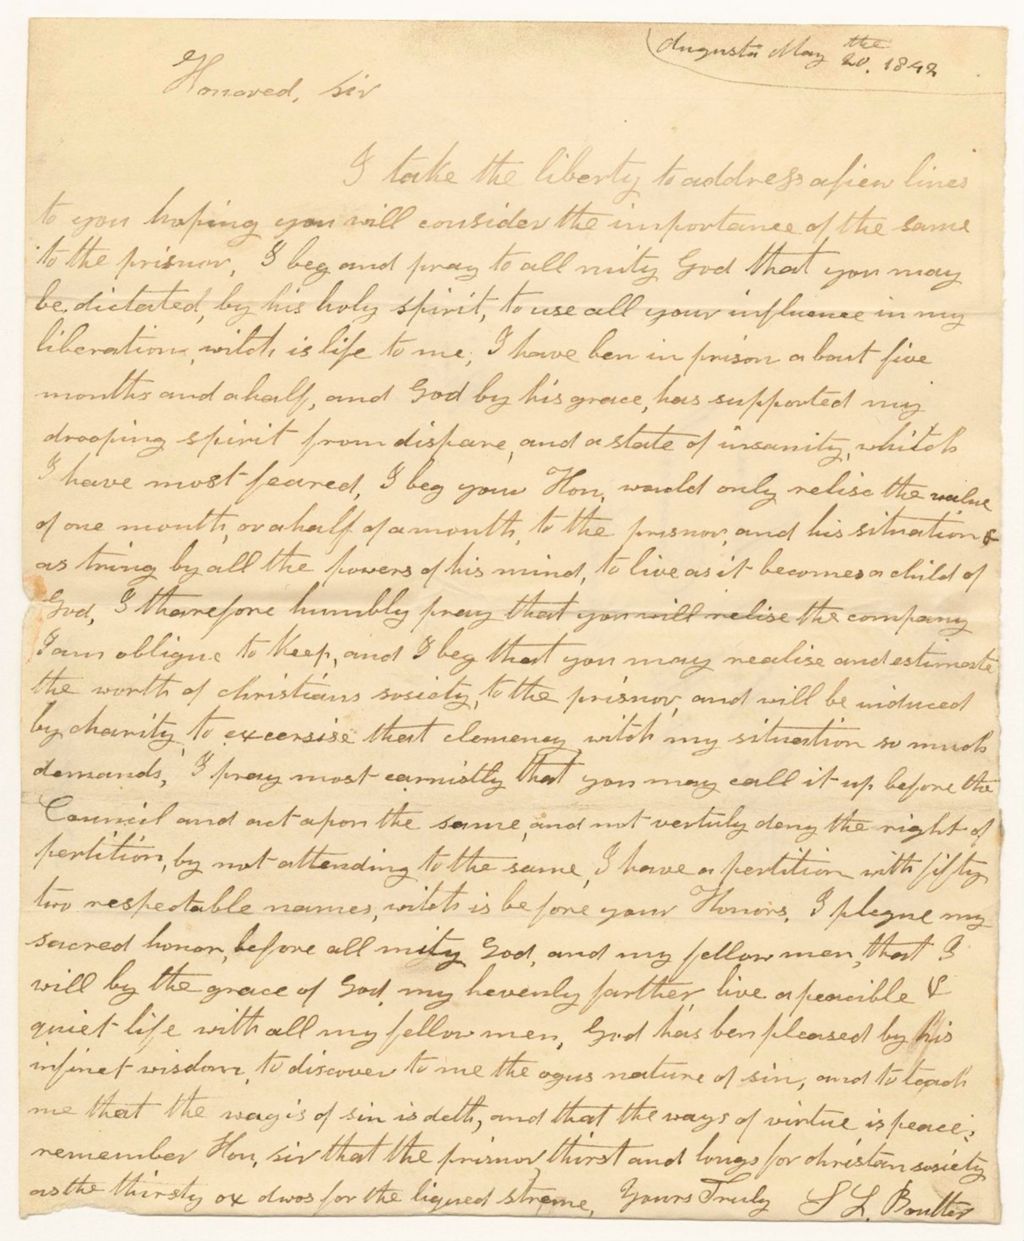 Augusta May the
20. 1842
Honored, Sir
I take the liberty to address afiew lines
to you hoping you will consider the importance of the same
to the prisnor, I beg and pray to all mity God that you may
be, dictated, by his holy spirit, to use all your influence in my
liberation, witch is life to me, I have ben in prison a bout five
months and a half, and God by his grace, has supported my
drooping spirit from dispare, and a state of insanity, whitch
I have most feared, I beg your Hon, would only relise the value
of one month, or a half of a month, to the prisnor, and his situation &
as tring by all the powers of his mind, to live as it becomes a child of
God, I tharefore humbly pray that you will relise the company
I am obligue to Keep, and I beg that you may realise and estimate
the worth of christians sosiety, to the prisnor, and will be induced
by charity, to excersise that clemency witch my situation so much
demands, I pray most earnistly that you may call it up before the
Council and act apon the same, and not vertuly deny the right of
pertition, by not attending to the same, I have a pertition with fifty
two respectable names, witch is be fore your Honors. I plegue my
sacred honor, before all mity God, and my fellow men, that I
will by the grace of God, my hevenly farther live a peacible &
quiet life with all my fellow men, God has ben pleased by his
infinet wisdom, to discover to me the ogus nature of sin, and to teach
me that the wagis of sin is deth, and that the ways of virtue is peace;
remember Hon, sir that the prisnor, thirst and longs for christan sosiety
as the thirsty ox dwos for the liqued streme, Yours Truly S L. Boulter